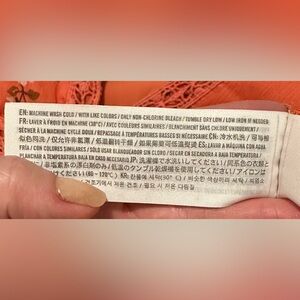 EN: MACHINE WASH COLD / WITH LIKE COLORS / ONLY NON-CHLORINE BLEACH / TUMBLE DRY LOW / LOW IRON IF NEEDED
FR: LAVER À FROID EN MACHINE (30°C) / AVEC COULEURS SIMILAIRES / BLANCHIMENT SANS CHLORE UNIQUEMENT /
SÉCHER À LA MACHINE CYCLE DOUX / REPASSAGE À TEMPÉRATURES BASSES SI NÉCESSAIRE CN: 冷水机洗 / 可与相
似色同洗 / 仅允许非氯漂 / 低温翻转干燥 / 如果需要可低温熨烫 ES: LAVAR A MÁQUINA CON AGUA
FRÍA / CON COLORES SIMILARES / SOLO USAR BLANQUEADOR SIN CLORO / SECAR EN SECADORA A BAJA TEMPERATURA /
PLANCHAR A TEMPERATURA BAJA EN CASO NECESARIO JP: 洗濯機で水洗いしてください / 同系色の衣類と
ください / 非塩素系の漂白剤のみ / 低温のタンブル乾燥機で乾燥してください / アイロンは
(80 - 120℃) KR: 찬물에 세탁(30° C) / 비슷한 색상끼리 세탁 /
건조기에서 저온 건조 / 필요 시 저온 다림질